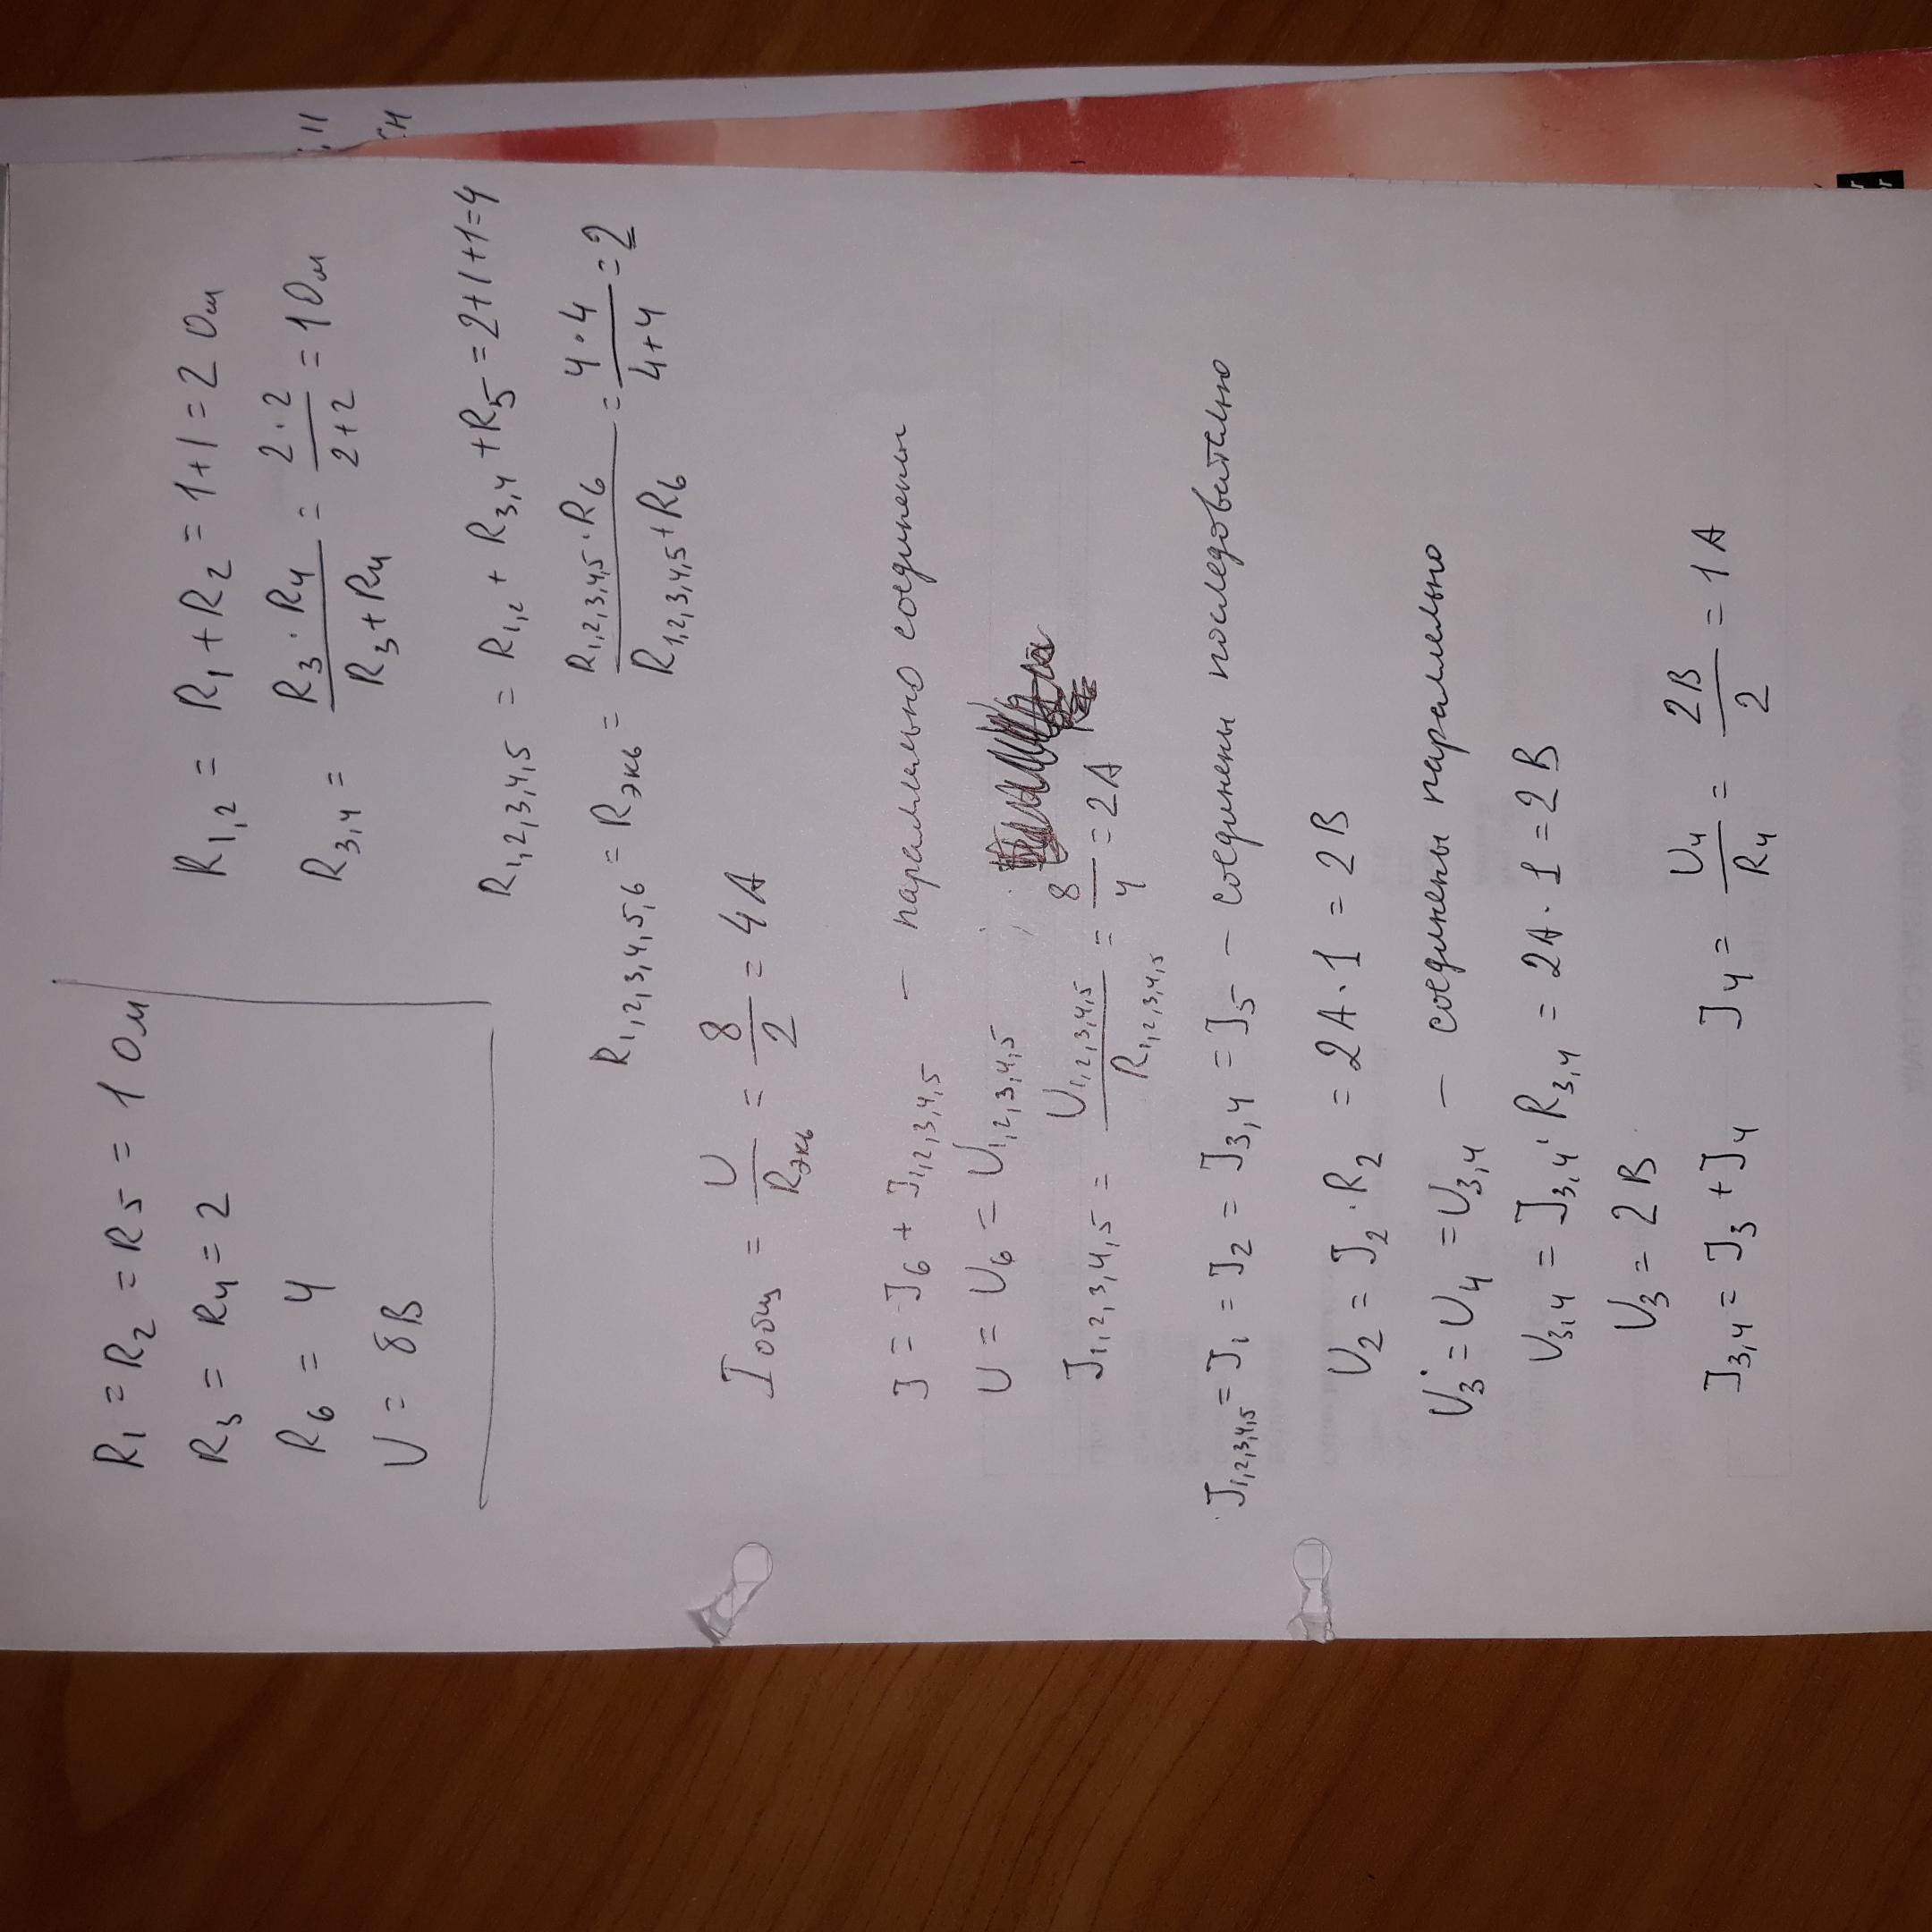 R₁ = R₂ = R₅ = 1 Ом
R₃ = R₄ = 2
R₆ = 4
U = 8В
R₁,₂ = R₁ + R₂ = 1+1 = 2 Ом
R₃,₄ = (R₃ · R₄)/(R₃ + R₄) = (2 · 2)/(2+2) = 1 Ом
R₁,₂,₃,₄,₅ = R₁,₂ + R₃,₄ + R₅ = 2+1+1=4
R₁,₂,₃,₄,₅,₆ = Rэкв = (R₁,₂,₃,₄,₅ · R₆)/(R₁,₂,₃,₄,₅ + R₆) = (4 · 4)/(4+4) = 2
Iобщ = U/Rэкв = 8/2 = 4 А
J = J₆ + J₁,₂,₃,₄,₅ – паралельно соединены
U = U₆ = U₁,₂,₃,₄,₅
J₁,₂,₃,₄,₅ = U₁,₂,₃,₄,₅/R₁,₂,₃,₄,₅ = 8/4 = 2 А
J₁,₂,₃,₄,₅ = J₁ = J₂ = J₃,₄ = J₅ – соединены последовательно
U₂ = J₂ · R₂ = 2 А · 1 = 2 В
U₃ = U₄ = U₃,₄ – соединены паралельно
U₃,₄ = J₃,₄ · R₃,₄ = 2А · 1 = 2 В
U₃ = 2 В
J₃,₄ = J₃ + J₄ J₄ = U₄/R₄ = 2В/2 = 1 А